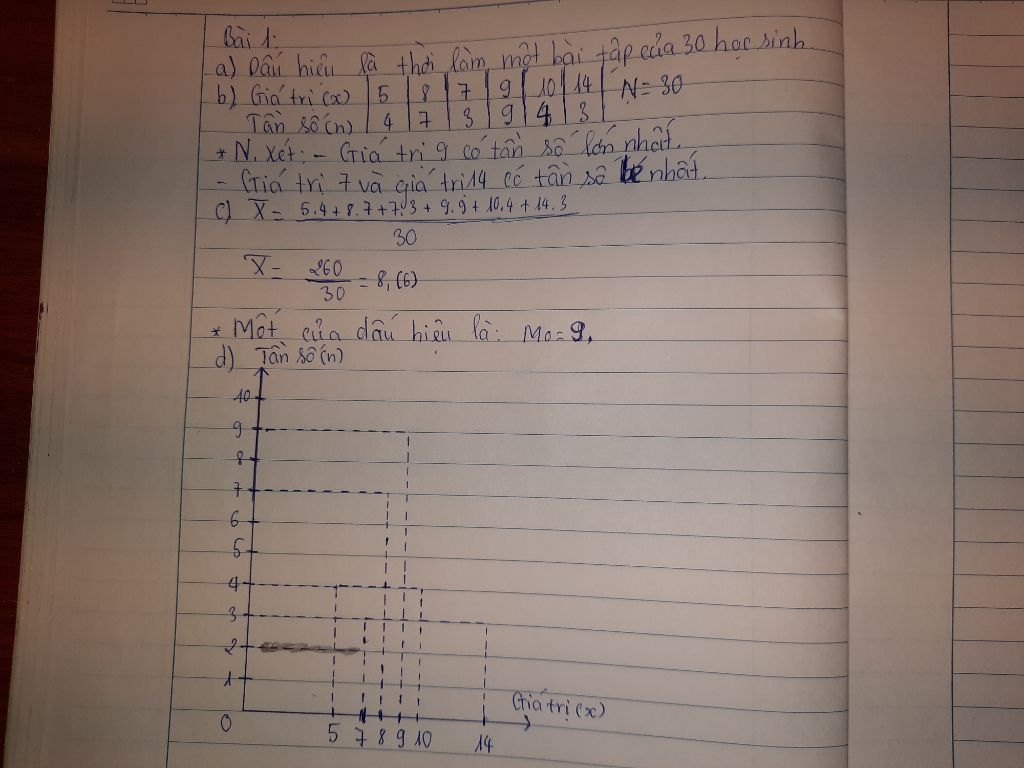 Bài 1:
a) Dấu hiệu là thời làm một bài tập của 30 học sinh.
b) Giá trị (x) | 5 | 8 | 7 | 9 | 10 | 14 | N = 30
Tần số (n) | 4 | 7 | 3 | 9 | 4 | 3 |
* N. xét: - Giá trị 9 có tần số lớn nhất.
- Giá trị 7 và giá trị 14 có tần số bé nhất.
c) X̄ = 5.4 + 8.7 + 7.3 + 9.9 + 10.4 + 14.3
30
X̄ = 260/30 = 8,(6)
* Mốt của dấu hiệu là: Mo = 9.
d) Tần số (n)
10
9
8
7
6
5
4
3
2
1
Giá trị (x)
0 5 7 8 9 10 14